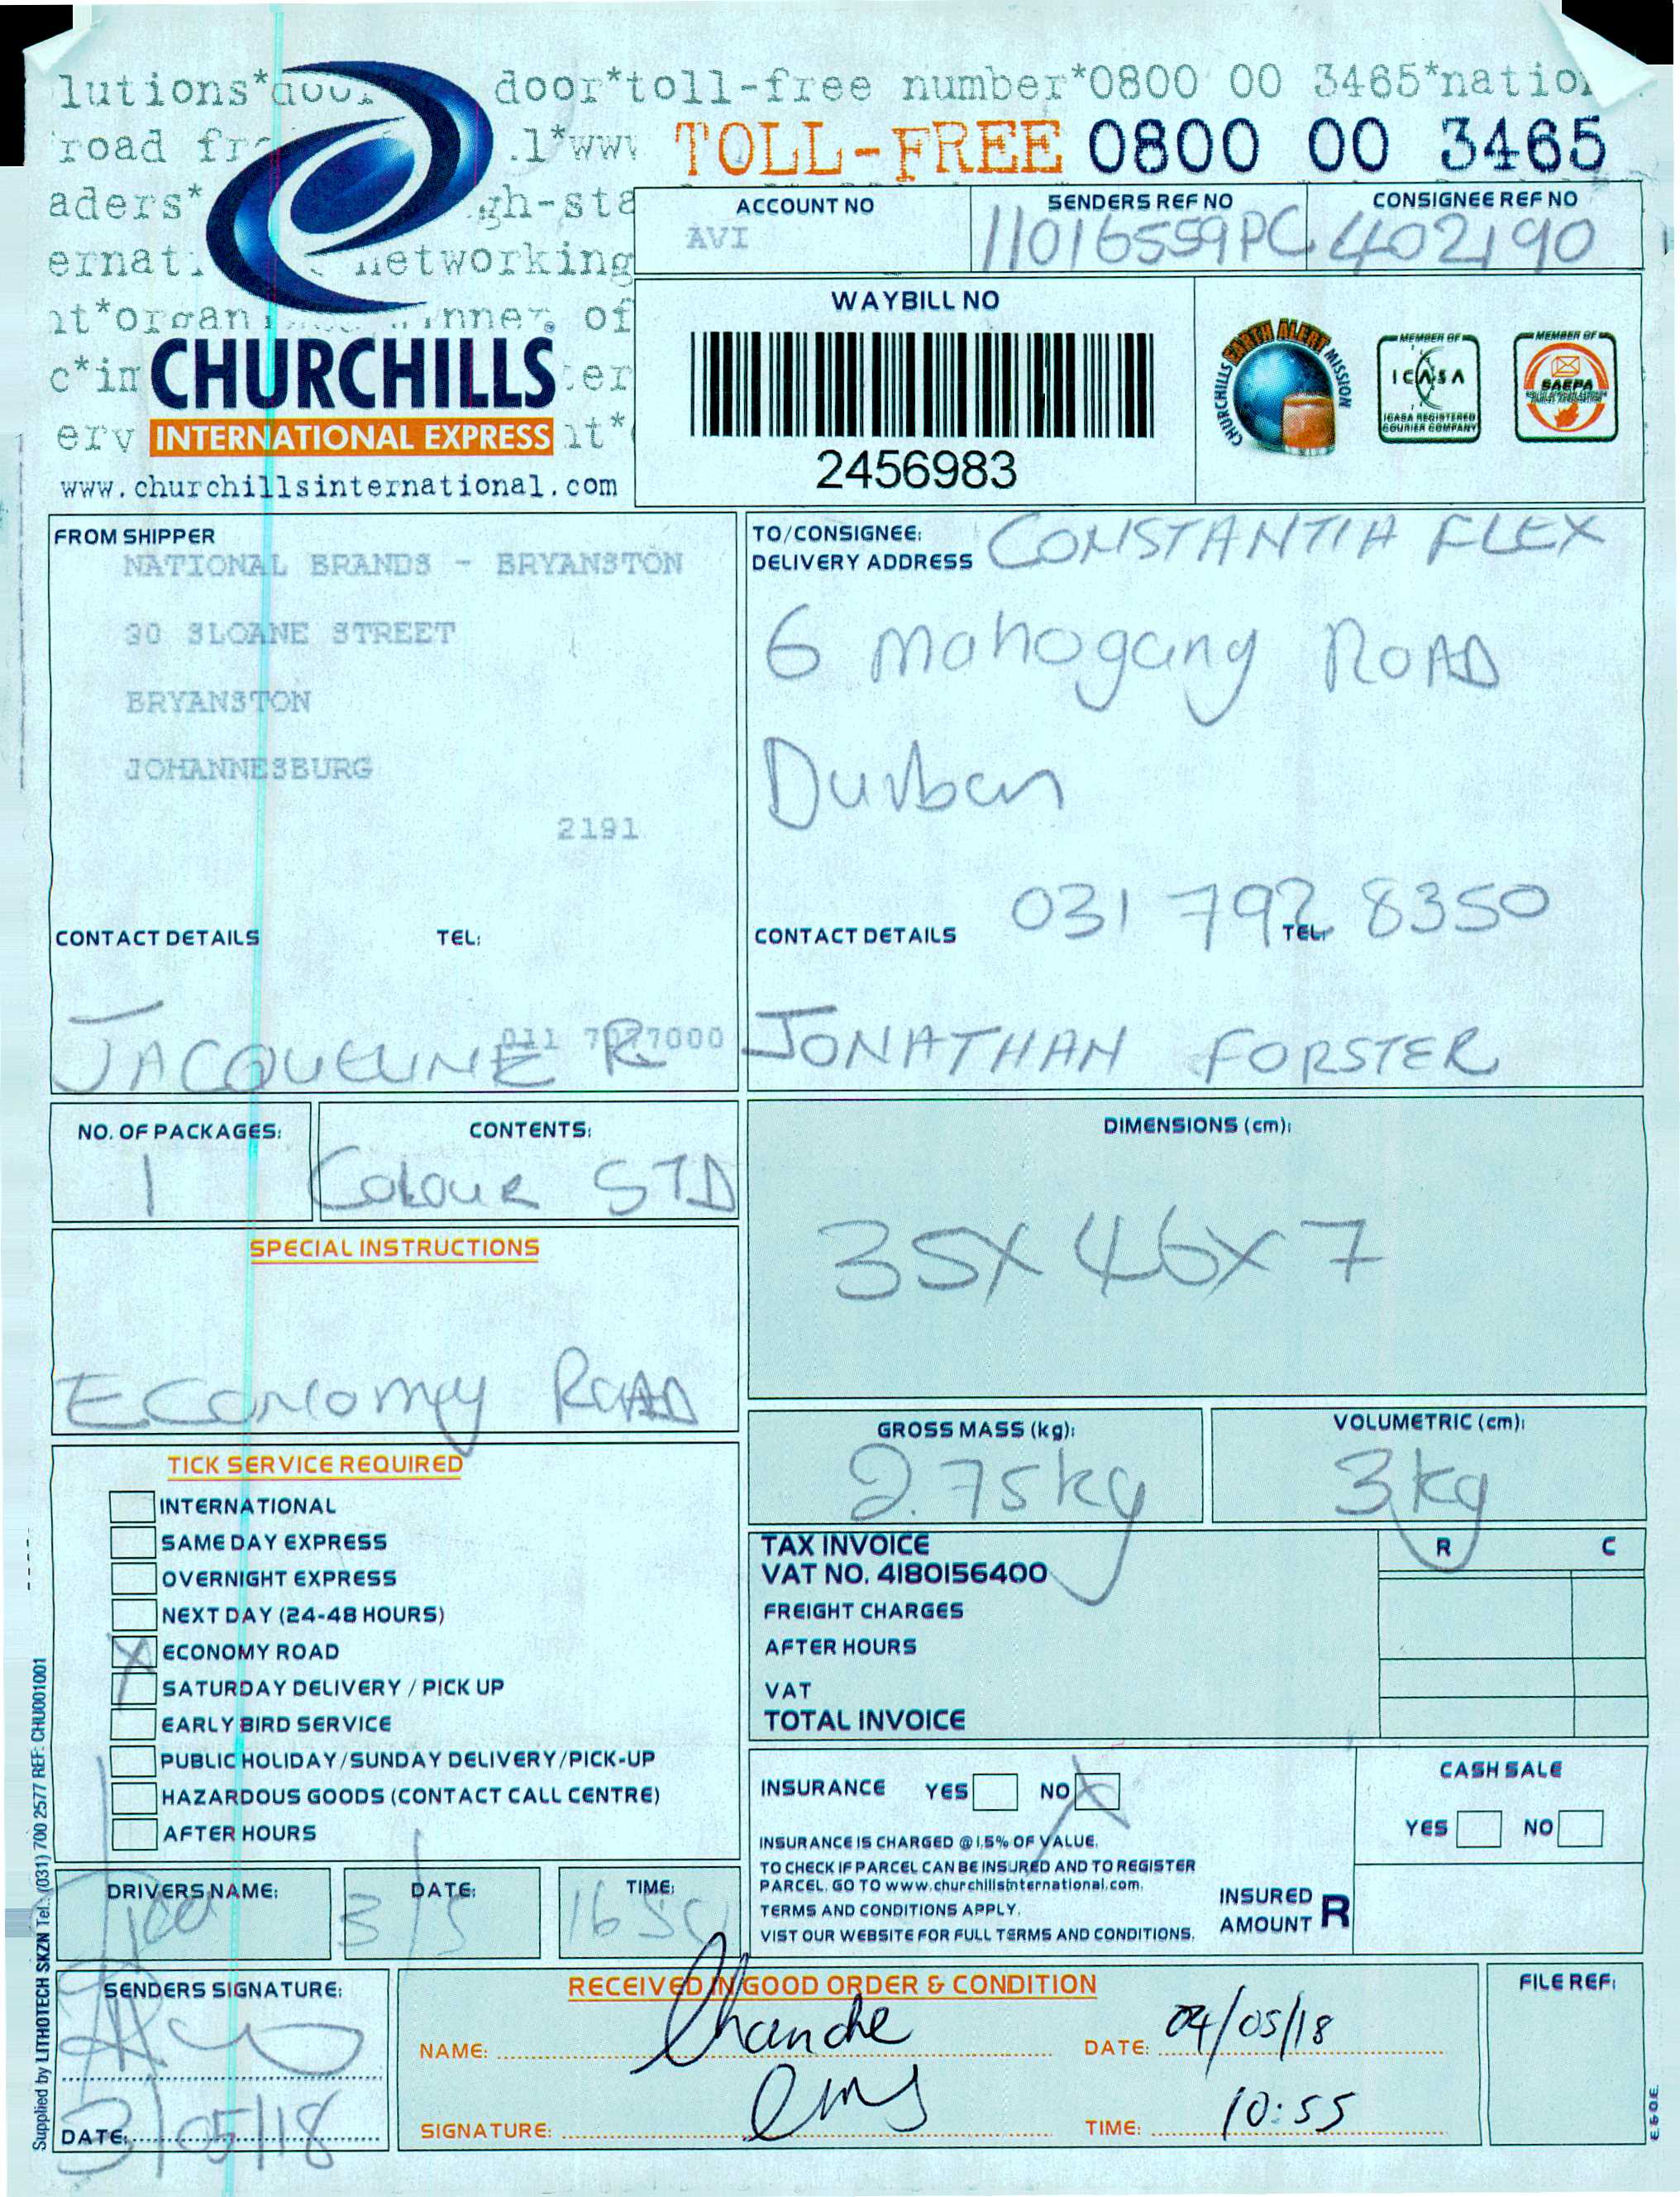 lutions*door door*toll-free number*0800 00 3465*natio
road fr .l*www
TOLL-FREE 0800 00 3465
aders* gh-sta
ernat networking
nt*organ nner of
c*in ter
erv nt*
CHURCHILLS
INTERNATIONAL EXPRESS
www.churchillsinternational.com
ACCOUNT NO SENDERS REF NO CONSIGNEE REF NO
AVI 11016559PC 402190
WAYBILL NO
2456983
CHURCHILLS EARTH ALERT MISSION
MEMBER OF
ICASA
ICASA REGISTERED
COURIER COMPANY
MEMBER OF
SAEPA
FROM SHIPPER
NATIONAL BRANDS - BRYANSTON
30 SLOANE STREET
BRYANSTON
JOHANNESBURG
2191
CONTACT DETAILS TEL:
011 7077000
JACQUELINE R
TO/CONSIGNEE:
DELIVERY ADDRESS
CONSTANTIA FLEX
6 Mahogany ROAD
Durban
031 792 8350
CONTACT DETAILS TEL:
JONATHAN FORSTER
NO. OF PACKAGES: CONTENTS:
1 Colour STD
DIMENSIONS (cm):
35X46X7
SPECIAL INSTRUCTIONS
Economy Road
GROSS MASS (kg): VOLUMETRIC (cm):
2.75kg 3kg
TICK SERVICE REQUIRED
INTERNATIONAL
SAME DAY EXPRESS
OVERNIGHT EXPRESS
NEXT DAY (24-48 HOURS)
X ECONOMY ROAD
SATURDAY DELIVERY / PICK UP
EARLY BIRD SERVICE
PUBLIC HOLIDAY/SUNDAY DELIVERY/PICK-UP
HAZARDOUS GOODS (CONTACT CALL CENTRE)
AFTER HOURS
TAX INVOICE R C
VAT NO. 4180156400
FREIGHT CHARGES
AFTER HOURS
VAT
TOTAL INVOICE
INSURANCE YES NO X
INSURANCE IS CHARGED @ 1.5% OF VALUE.
TO CHECK IF PARCEL CAN BE INSURED AND TO REGISTER
PARCEL. GO TO www.churchillsinternational.com.
TERMS AND CONDITIONS APPLY.
VIST OUR WEBSITE FOR FULL TERMS AND CONDITIONS.
INSURED
AMOUNT R
CASH SALE
YES NO
DRIVERS NAME: DATE: TIME:
3/5 1650
SENDERS SIGNATURE:
DATE:
3/05/18
RECEIVED IN GOOD ORDER & CONDITION
NAME: DATE: 04/05/18
SIGNATURE: TIME: 10:55
FILE REF:
E.&O.E.
Supplied by LITHOTECH SKZN Tel.: (031) 700 2577 REF: CHU001001